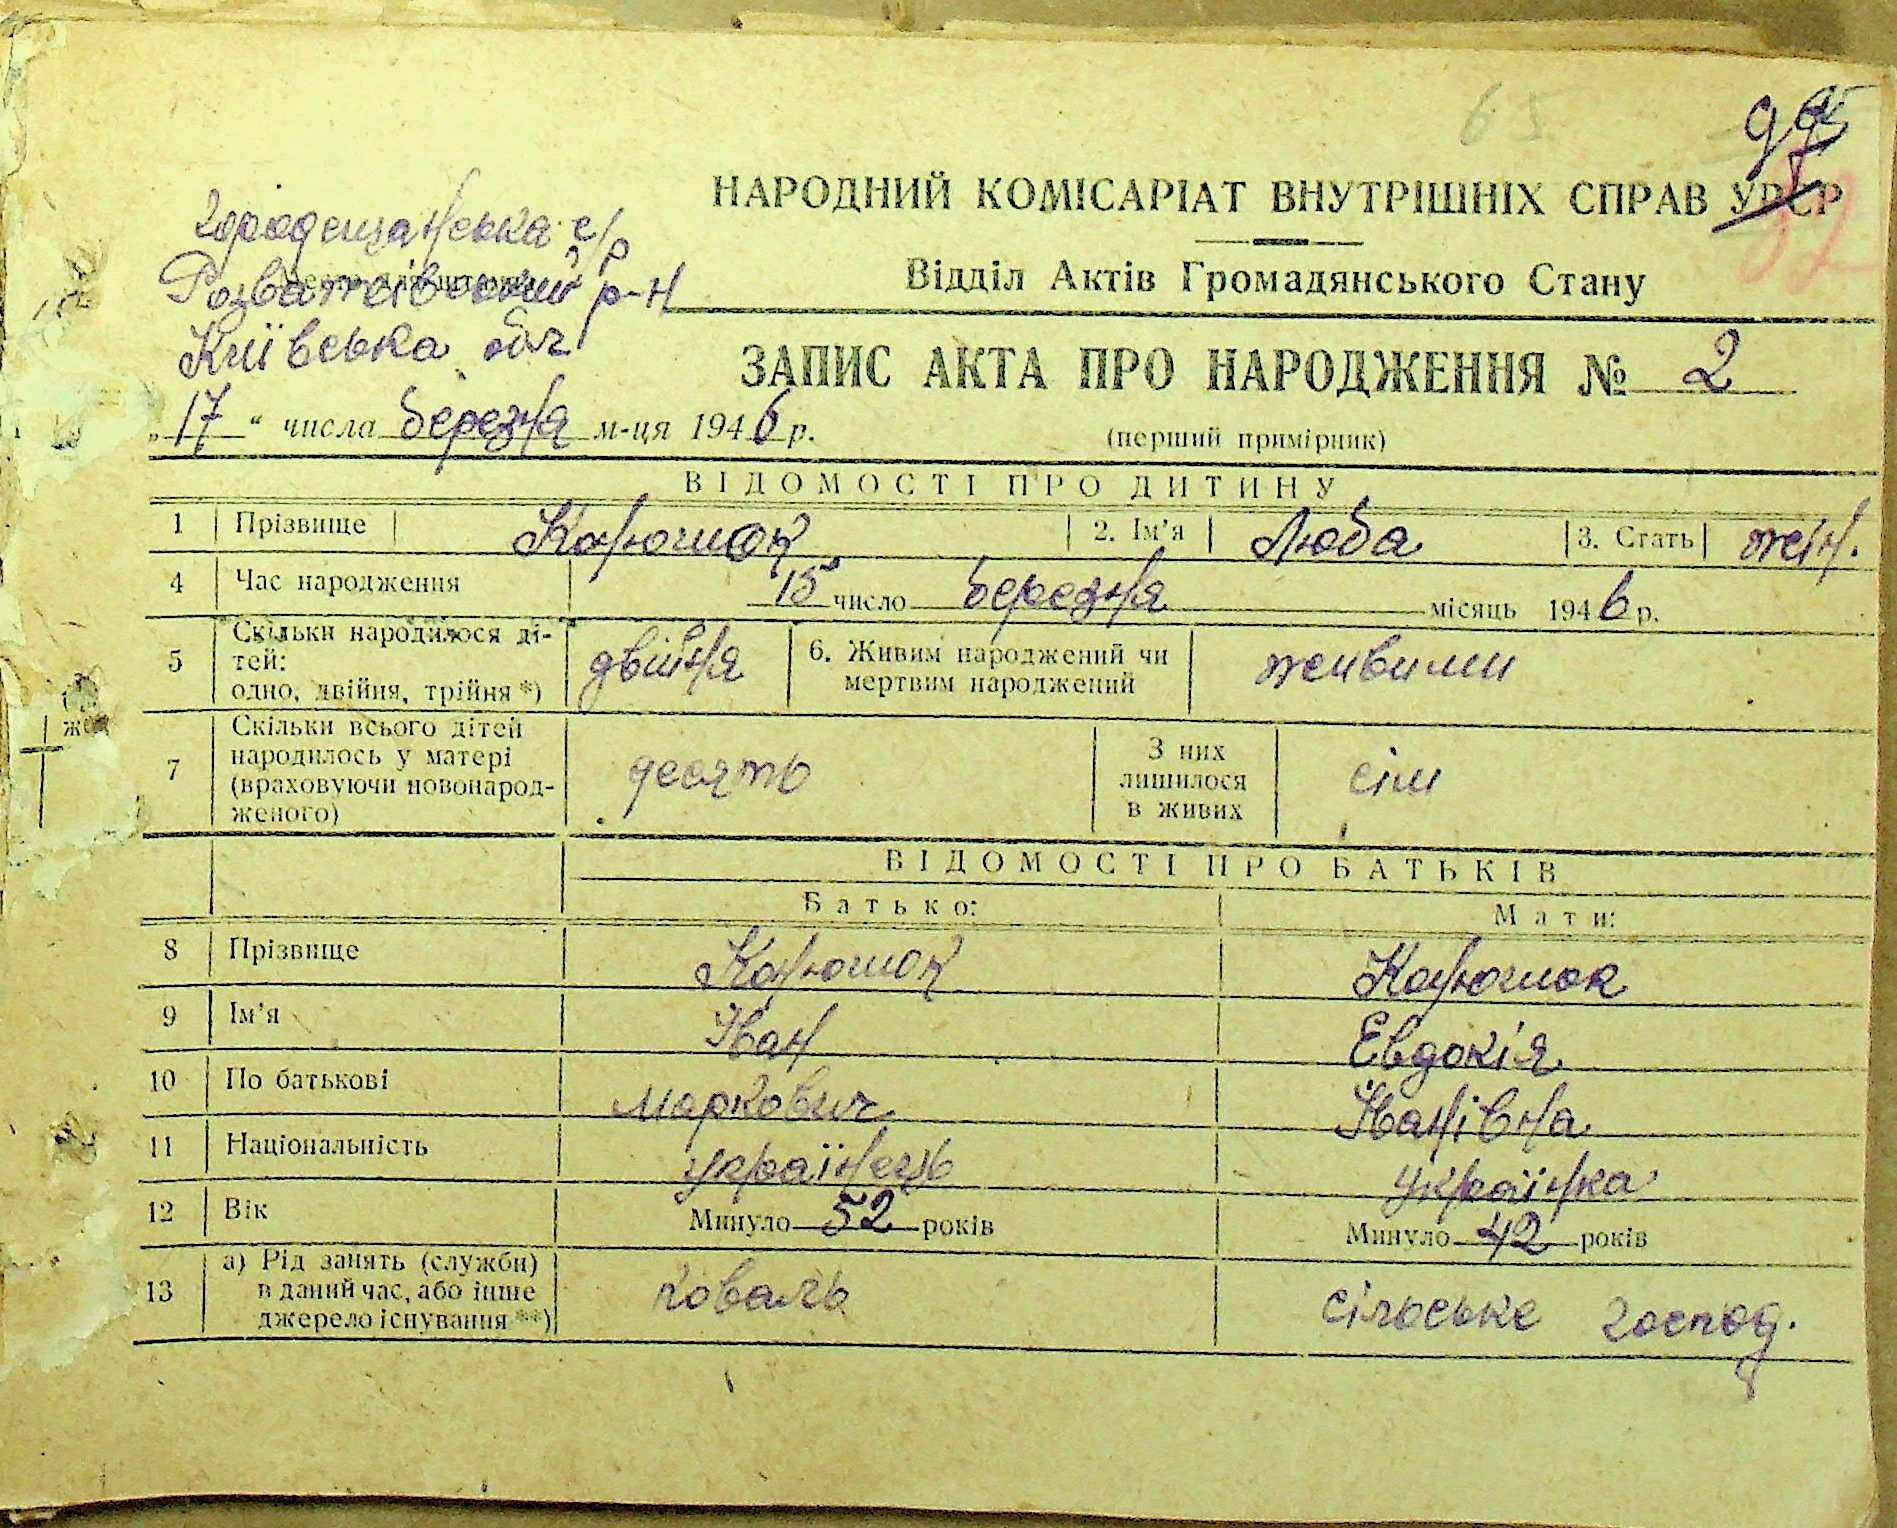 65
НАРОДНИЙ КОМІСАРІАТ ВНУТРІШНІХ СПРАВ УРСР
Відділ Актів Громадянського Стану
Городещанська с/р
Розважівський р-н
Київська обл
ЗАПИС АКТА ПРО НАРОДЖЕННЯ № 2
„17“ числа березня м-ця 1946 р.
(перший примірник)
ВІДОМОСТІ ПРО ДИТИНУ
1 Прізвище Канюшок 2. Ім'я Люба 3. Стать жін.
4 Час народження 15 число березня місяць 1946 р.
5 Скільки народилося дітей: одно, двійня, трійня *) двійня 6. Живим народжений чи мертвим народжений живими
7 Скільки всього дітей народилось у матері (враховуючи новонародженого) десять З них лишилося в живих сім
ВІДОМОСТІ ПРО БАТЬКІВ
Батько: Мати:
8 Прізвище Канюшок Канюшок
9 Ім'я Іван Евдокія
10 По батькові Маркович Іванівна
11 Національність українець українка
12 Вік Минуло 52 років Минуло 42 років
13 а) Рід занять (служби) в даний час, або інше джерело існування **) коваль сільське господ.